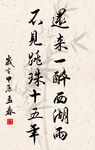 還来一醉西湖雨
不見跳珠十五年
歲立甲辰孟春